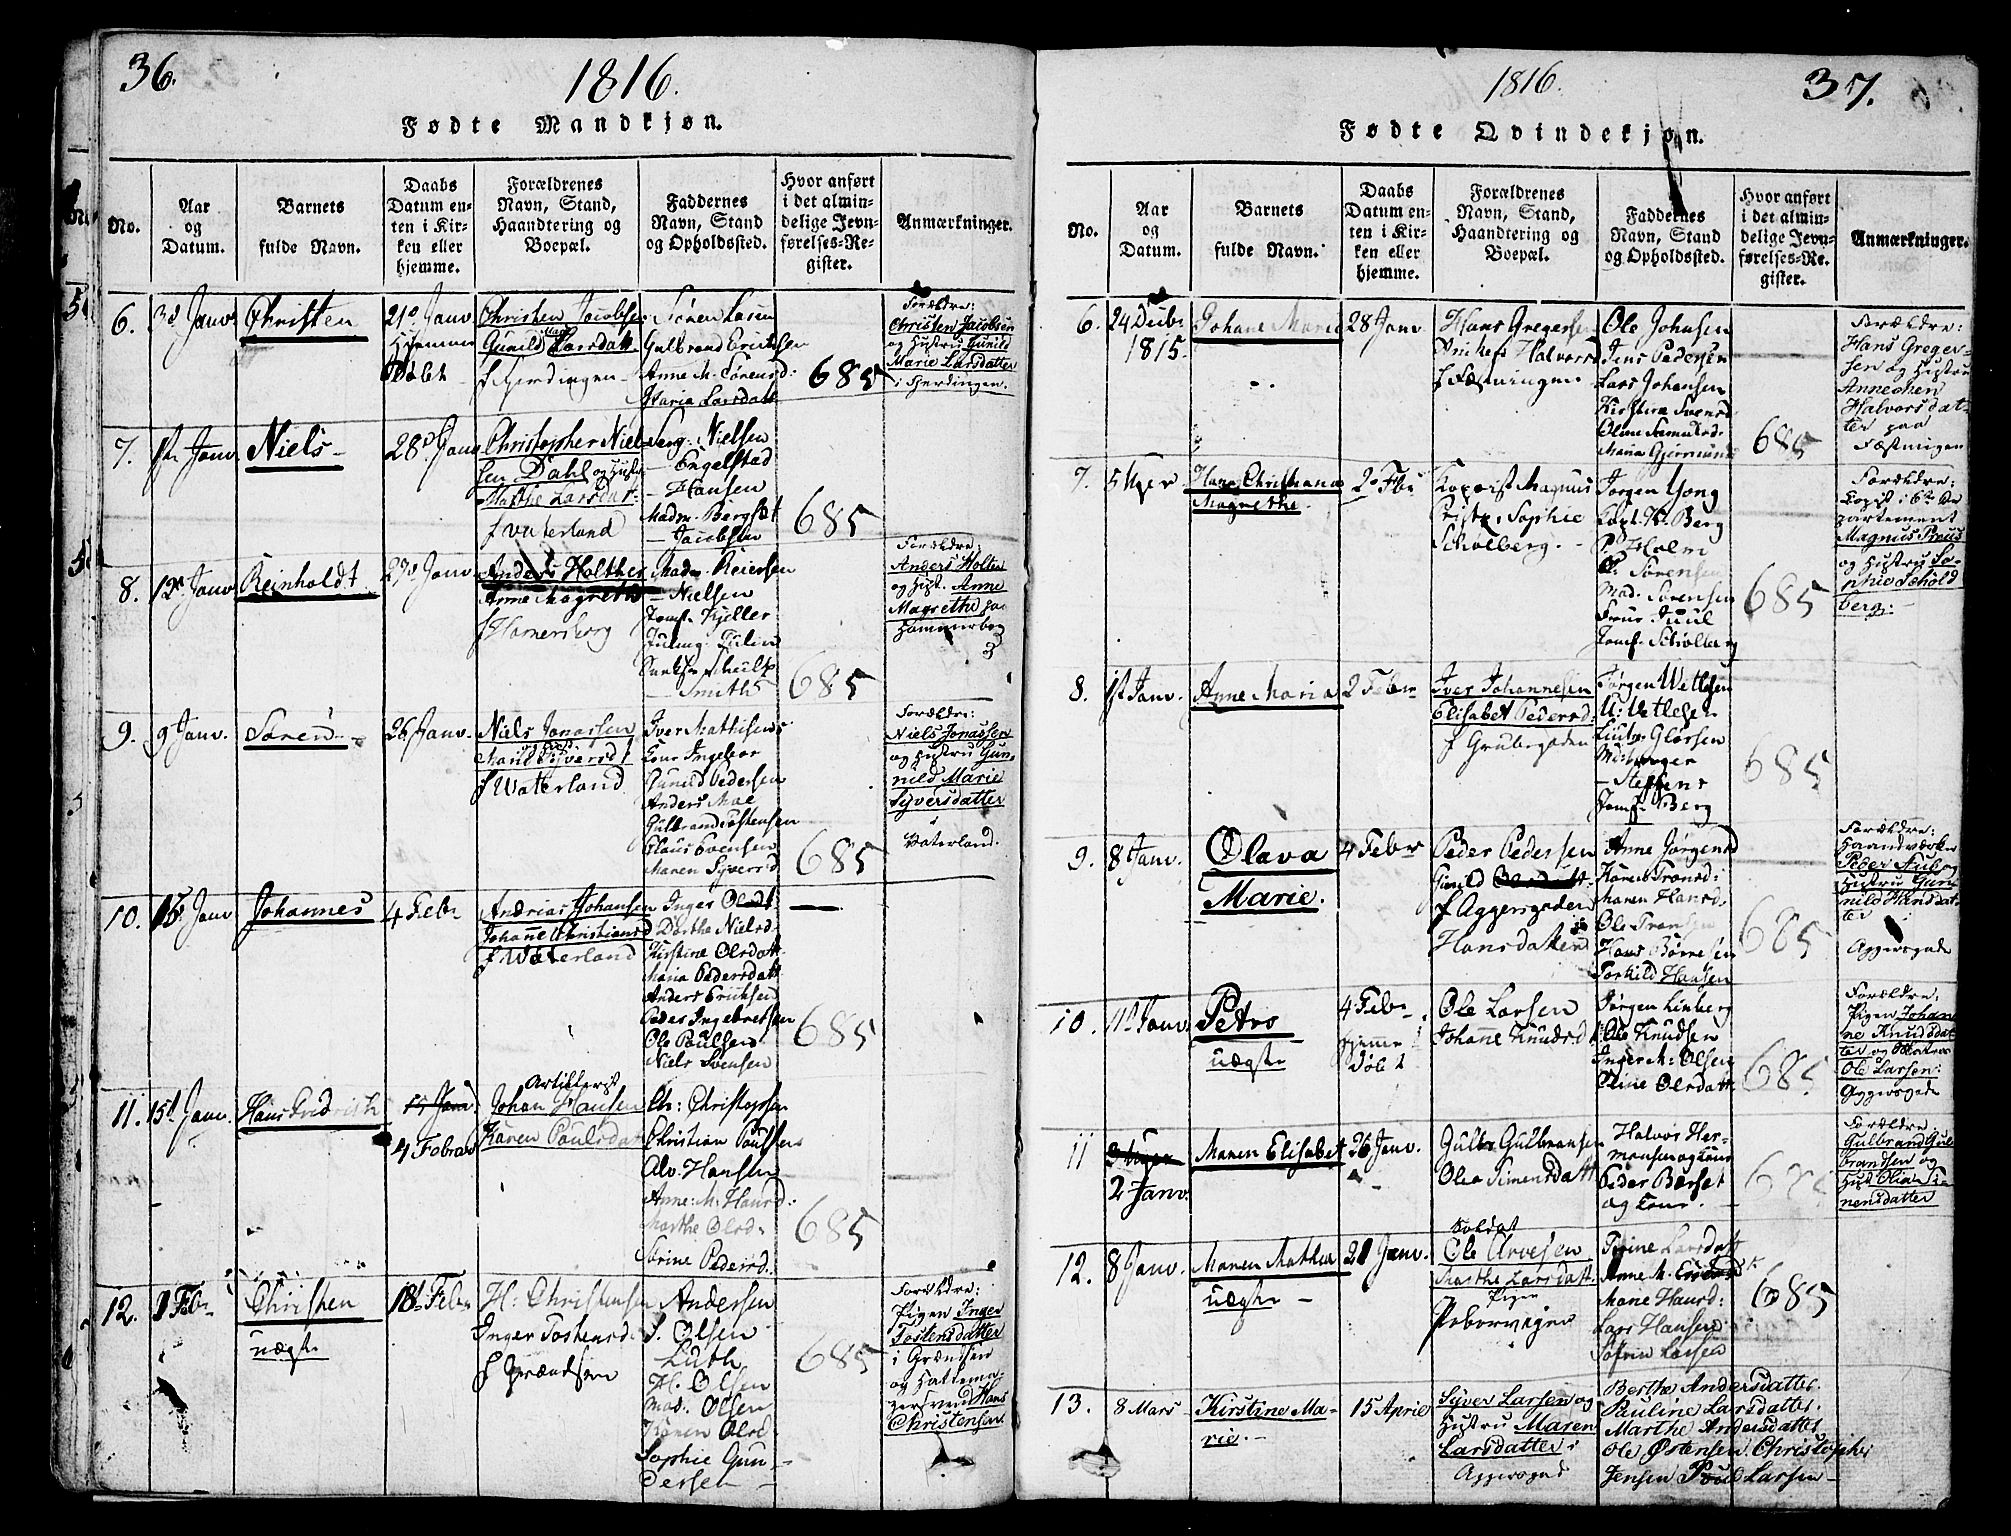 36.
1816.
Fødte Mandkjøn.
No.
Aar
og
Datum.
Barnets
fulde Navn.
Daabs
Datum en-
ten i Kir-
ken eller
hjemme.
Forældrenes
Navn, Stand,
Haandtering og
Boepæl.
Faddernes
Navn, Stand
og Opholdssted.
Hvor anført
i det almin-
delige Jevn-
førelses-Re-
gister.
Anmærkninger.
6.
3d Janv.
Christen
21d Janv
Hjemme
Døbt
Christen Jacobsen
Gunild Marie Larsdatt
Søren Larsen
Gulbrand Erichsen
Anne M. Sørensd:
Maria Larsdatt
685
Forældre:
Christen Jacobsen
og Hustru Gunild
Marie Larsdatter
i Fjerdingen.
7.
1st Janv
Niels
28d Janv
Christopher Niel-
sen Dahl og Hust
Marthe Larsdat:
i Vaterland
Serg. Nielsen
— Engelstad
— Hansen
Madm. Bergset
— Jacobsen
685
8.
12t Janv
Reinholdt
27d Janv
Anders Holther
Anne Magrethe
Hamersborg
Madm. Reiersen
— Nielsen
Jomf. Kjeller
— Smith
685
Forældre:
Anders Holter
og Hust. Anne
Magrethe paa
Hammerborg
9.
9 Janv.
Søren
26 Janv.
Niels Jonassen
i Waterland
Iver Mathisens
Kone Ingebor
Gunild Pedersen
Anders Moe
Gulbrand Tostensen
Claus Evensen
Maren Syversd
685
Forældre:
Niels Jonassen
og Hustru Gun-
nild Marie
Syversdatter
i
Vaterland.
10.
15 Janv
Johannes
4 Febr
Andrias Johansen
Johanne Christiansd
i Waterland
Inger Olsdt
Dorthe Nielsd.
Kirstine Olsdatt
Maria Pedersdatt
Anders Ericksen
Peder Ingebretsen
Ole Paulsen
Niels Svensen
685
11.
15d Janv.
Hans Fredrich
4 Febr
Artillerist
Johan Hansen
Karen Paulsdat
Chr: Christophsen
Christian Paulsen
Alv. Hansen
Anne M. Hansd:
Marthe Olsd.
Sørine Pedersd.
685
12.
1 Febr
Christen
uægte
18t Febr
H: Christensen
Inger Tostensd
i Grændsen
Andersen
S. Olsen
Luth
H. Olsen
Mad. Olsen
Karen Olsd
Sophie Gun-
dersen
685
Forældre:
Pigen Inger
Tostensdatter
i Grændsen
og Hattema-
gersvend Hans
Christensen
1816.
37.
Fødte Qvindekjøn.
No.
Aar
og
Datum.
Barnets
fulde Navn.
Daabs
Datum en-
ten i Kir-
ken eller
hjemme.
Forældrenes
Navn, Stand,
Haandtering og
Boepæl.
Faddernes
Navn, Stand
og Opholdssted.
Hvor anført
i det almin-
delige Jevn-
førelses-Re-
gister.
Anmærkninger.
6.
24 Decbr
1815.
Johane Marie
28 Janv
Hans Gregersen
i Fæstningen
Ole Johnsen
Jens Pedersen
Lars Johansen
Kirstine Svensd
Oline Samuelsd.
Maria Gjermunds
685
Forældre:
Hans Greger-
sen og Hustru
Annechen
Halvorsdat-
ter paa
Fæstnigen
7.
5
Hana Christiana
Magrethe.
2 Feb
Kopiist Magnus
Sophie
Schølberg.
Jørgen Yong
Capt. V. Berg
P. Holm
C. Sørensen
Mad. Sørensen
Frue Juul
Jomf. Schølberg
685
Forældre:
Copist i 6te De
partement
Magnus
og Hustru So-
phie Schold
berg:
8.
1st Janv.
Anne Maria
2 Febr
Iver Johannesen
Elisabet Pedersd.
i Grubegaden
Jørgen Wetlesen
— Steffens
Jomf. Berg
685
9.
8 Janv.
Olava
Marie.
4 Febr
Peder Pedersen
Gunild
i Aggersgaden
Hansdatter
Anne Jørgensd
Karen Transd:
Maren Hansd.
Ole Transen
Hans Børresen
Torkild Hansen
685
Forældre:
Haandværker
Peder Stub og
Hustru Gun
nild Hansdat-
ter
Aggersgade
10.
11t Janv.
Petra
uægte
4 Febr
hjemme
døbt
Ole Larsen
Johanne Knudsd
Jørgen Linberg
Ole Knudsen
Inger M. Olsen
Oline Olsdatt
685
Forældre:
Pigen Johan
ne Knudsdat
ter og Matros
Ole Larsen:
Aggersgade
11
2 Janv.
Maren Elisabet
26 Janv.
Gulbr Gulbransen
Olea Simensdatt
Halvor Her-
mansen og Kone
Peder Børset
og Kone.
685
Forældre:
Gulbrand Gul
brandsen og
Hust Olia Si-
mensdatter
12.
8 Janv.
Maren Mathea
uægte
21 Janv.
Soldat
Ole Arvesen
Marthe Larsdatt.
Pige
Piberviigen
Trine Larsdatt
Anne M.
Marie Hansd:
Lars Hansen
Søfrin Larsen
685
13.
8 Mars
Kirstine Ma-
rie.
15 April
Syver Larsen og
Hustru Maren
Larsdatter i
Aggersgad
Berthe Andersdatter.
Pauline Larsdatter.
Marthe Andersdatter
Ole Østensen. Christopher
Jensen Poul Larsen